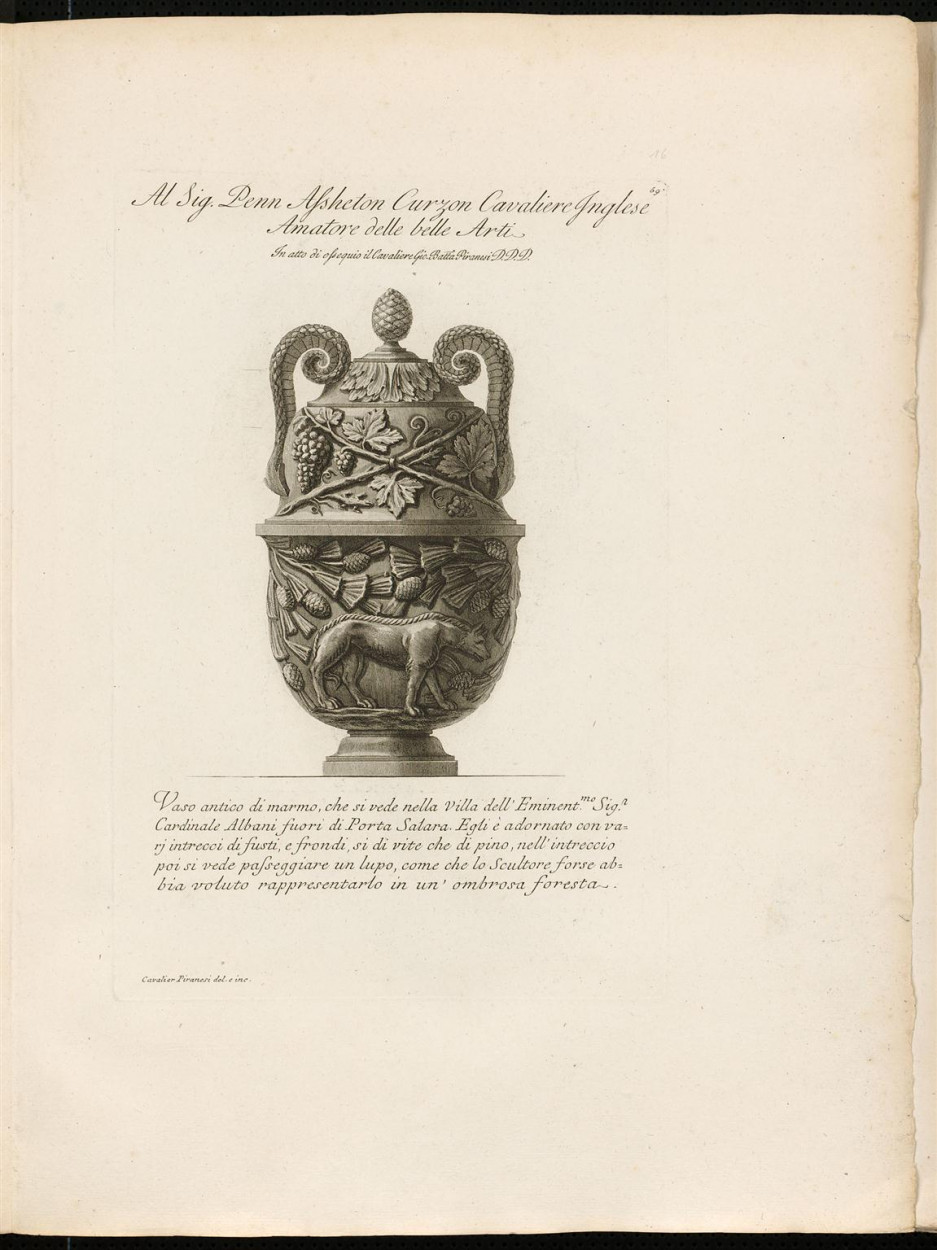 16
69.
Al Sig. Penn Aſsheton Curzon Cavaliere Inglese
Amatore delle belle Arti
In atto di oſsequio il Cavaliere Gio. Batta Piranesi D.D.D.
Vaso antico di marmo, che si vede nella Villa dell' Eminent.mo Sig.r
Cardinale Albani fuori di Porta Salara. Egli è adornato con va=
rj intrecci di fusti, e frondi, si di vite che di pino, nell'intreccio
poi si vede paſseggiare un lupo, come che lo Scultore forse ab=
bia voluto rappresentarlo in un' ombrosa foresta.
Cavalier Piranesi del. e inc.